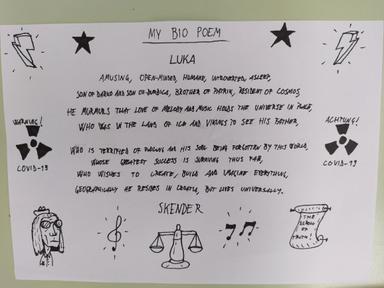 MY BIO POEM
LUKA
AMUSING, OPEN-MINDED, HUMANE, INTROVERTED, ASLEEP,
SON OF DARKO AND SON OF ĐURĐICA, BROTHER OF PATRIK, RESIDENT OF COSMOS
HE MURMURS THAT LOVE OF MELODY AND MUSIC HOLDS THE UNIVERSE IN PLACE,
WHO WAS IN THE LAND OF ICE AND VIKINGS TO SEE HIS FATHER,
WARNING!
ACHTUNG!
WHO IS TERRIFIED OF AND HIS SOUL BEING FORGOTTEN BY THIS WORLD,
WHOSE GREATEST SUCCESS IS SURVIVING THUS FAR,
WHO WISHES TO CREATE, BUILD AND IMAGINE EVERYTHING,
GEOGRAPHICALLY HE RESIDES IN CROATIA, BUT LIVES UNIVERSALLY.
COVID-19
COVID-19
SKENDER
THE
SCROLL
OF
TRUTH!